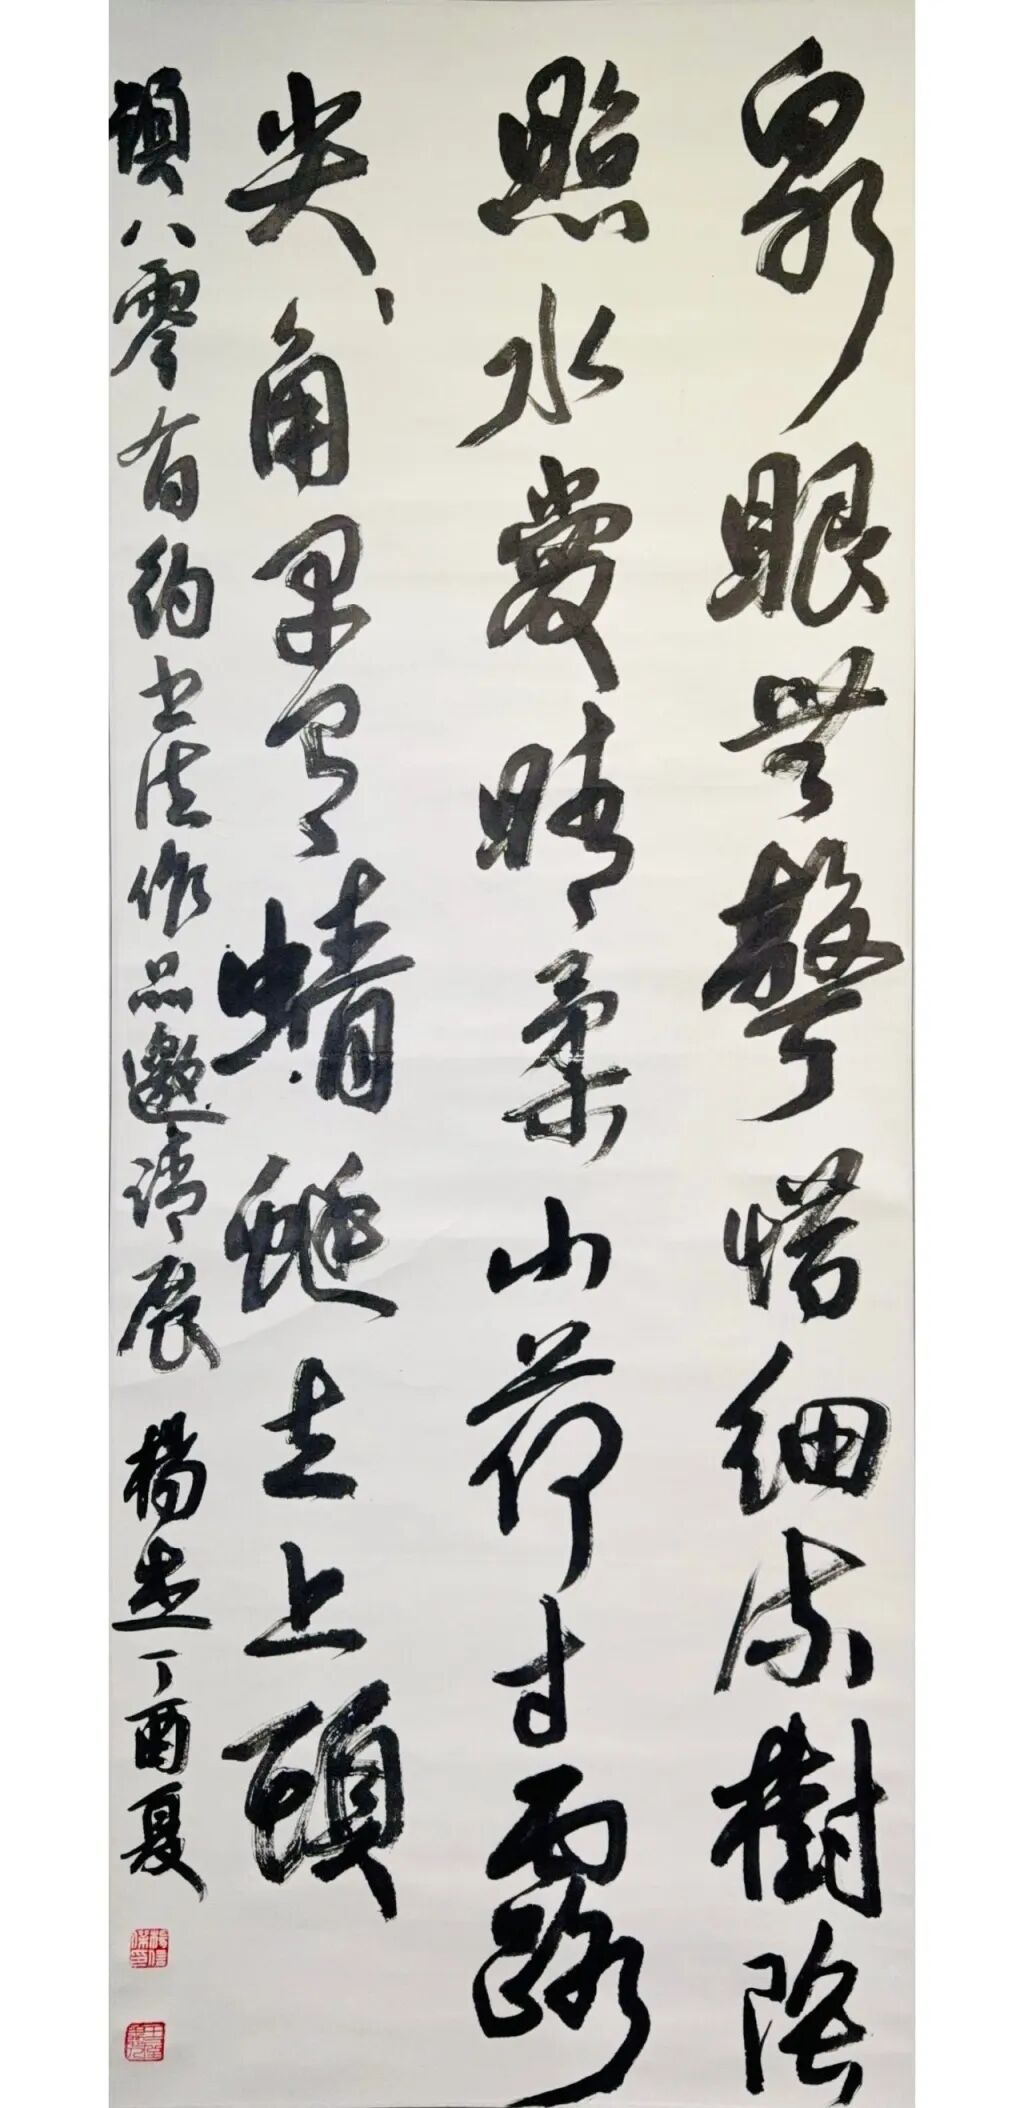 泉眼無聲惜細流樹陰
照水愛晴柔小荷才露
尖、角早有蜻蜓立上頭
八零有約書法作品邀請展 楊 丁酉夏